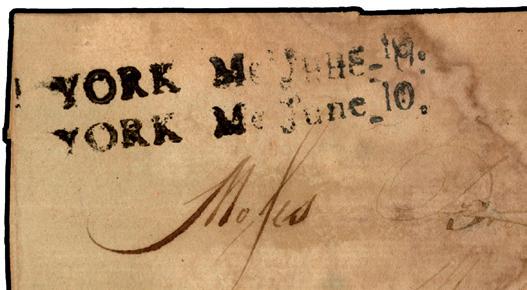 YORK Me June 10.
YORK Me June 10.
Moſes